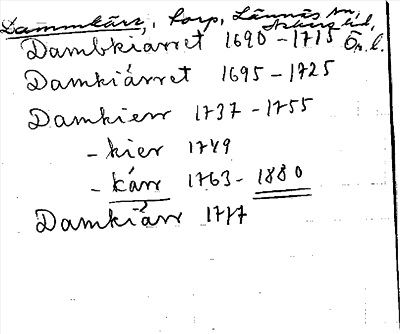 Dammkärr, torp, Lännäs sn,
Askers hd,
Ör. l.
Dambkiärret 1690-1715
Damkiärret 1695-1725
Damkierr 1737-1755
- kier 1749
- kärr 1763-1880
Damkiärr 1777